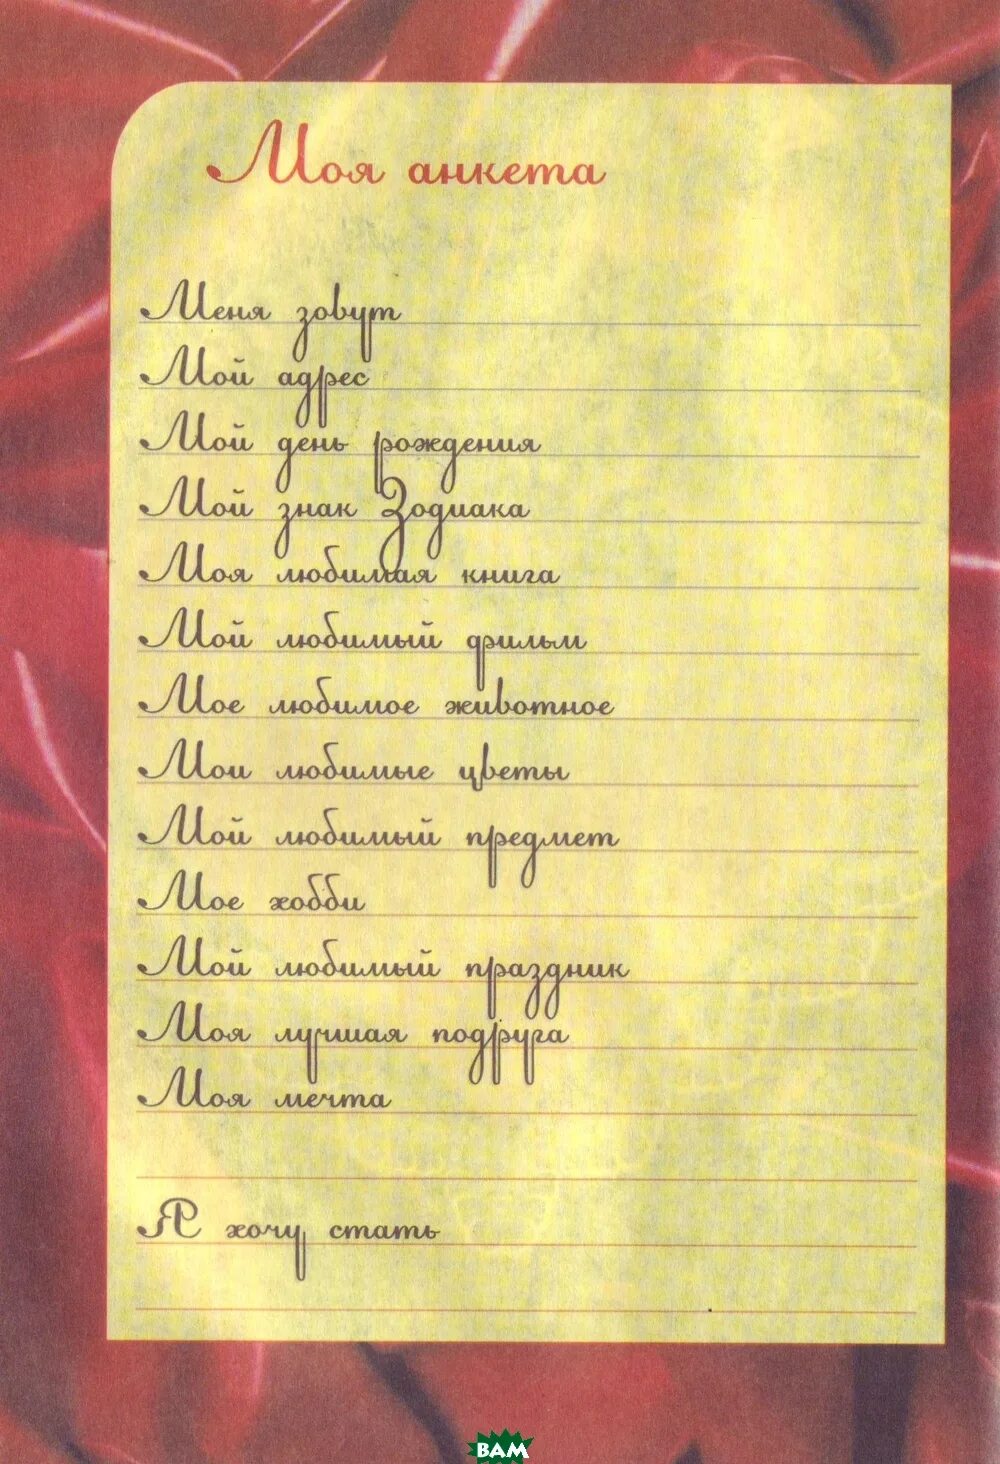 Моя анкета
Меня зовут
Мой адрес
Мой день рождения
Мой знак Зодиака
Моя любимая книга
Мой любимый фильм
Мое любимое животное
Мои любимые цветы
Мой любимый предмет
Мое хобби
Мой любимый праздник
Моя лучшая подруга
Моя мечта
Я хочу стать
BAM